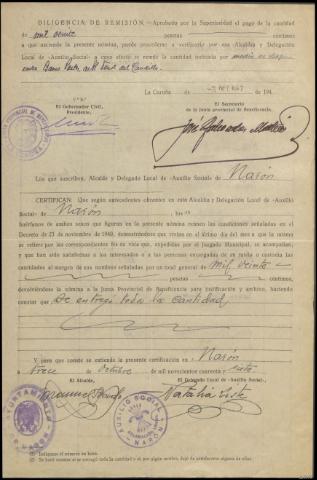 DILIGENCIA DE REMISIÓN.—Aprobado por la Superioridad el pago de la cantidad
de mil veinte pesetas céntimos
a que asciende la presente nómina, puede procederse a verificarlo por esa Alcaldía y Delegación
Local de «Auxilio Social» a cuyo efecto se remite la cantidad indicada por
La Coruña, de 2 OCT 1947 de 194
V.º B.º
El Gobernador Civil,
Presidente,
El Secretario
de la Junta provincial de Beneficencia,
Los que suscriben, Alcalde y Delegado Local de «Auxilio Social» de Narón
CERTIFICAN: Que según antecedentes obrantes en esta Alcaldía y Delegación de «Auxilio
Social» de Narón, los
huérfanos de ambos sexos que figuran en la presente nómina reúnen las condiciones señaladas en el
Decreto de 23 de noviembre de 1940, que vivían en el último día del mes a que la misma
se refiere por las correspondientes fes de vida que, expedidas por el Juzgado Municipal, se acompañan,
y que han sido satisfechas a los interesados o a las personas encargadas de su guarda o custodia las
cantidades al margen de sus nombres señaladas por un total general de mil veinte
pesetas céntimos,
devolviéndose la nómina a la Junta Provincial de Beneficencia para justificación y archivo, haciendo
constar que Se entregó toda la cantidad
Y para que conste se extiende la presente certificación en Narón
a trece de Octubre de mil novecientos cuarenta y siete
El Alcalde,
El Delegado Local de «Auxilio Social»,
AYUNTAMIENTO
NARÓN
AUXILIO SOCIAL
NARÓN
(1) Indíquese el número en letra.